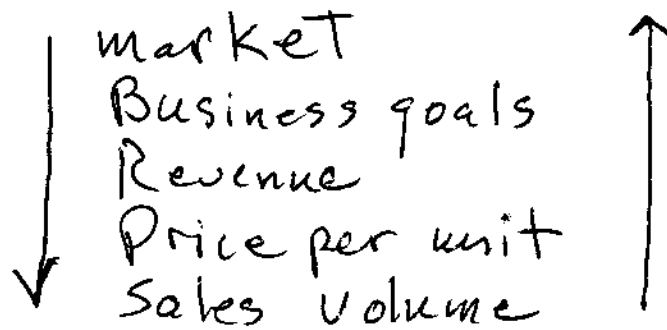 market
Business goals
Revenue
Price per unit
Sales volume